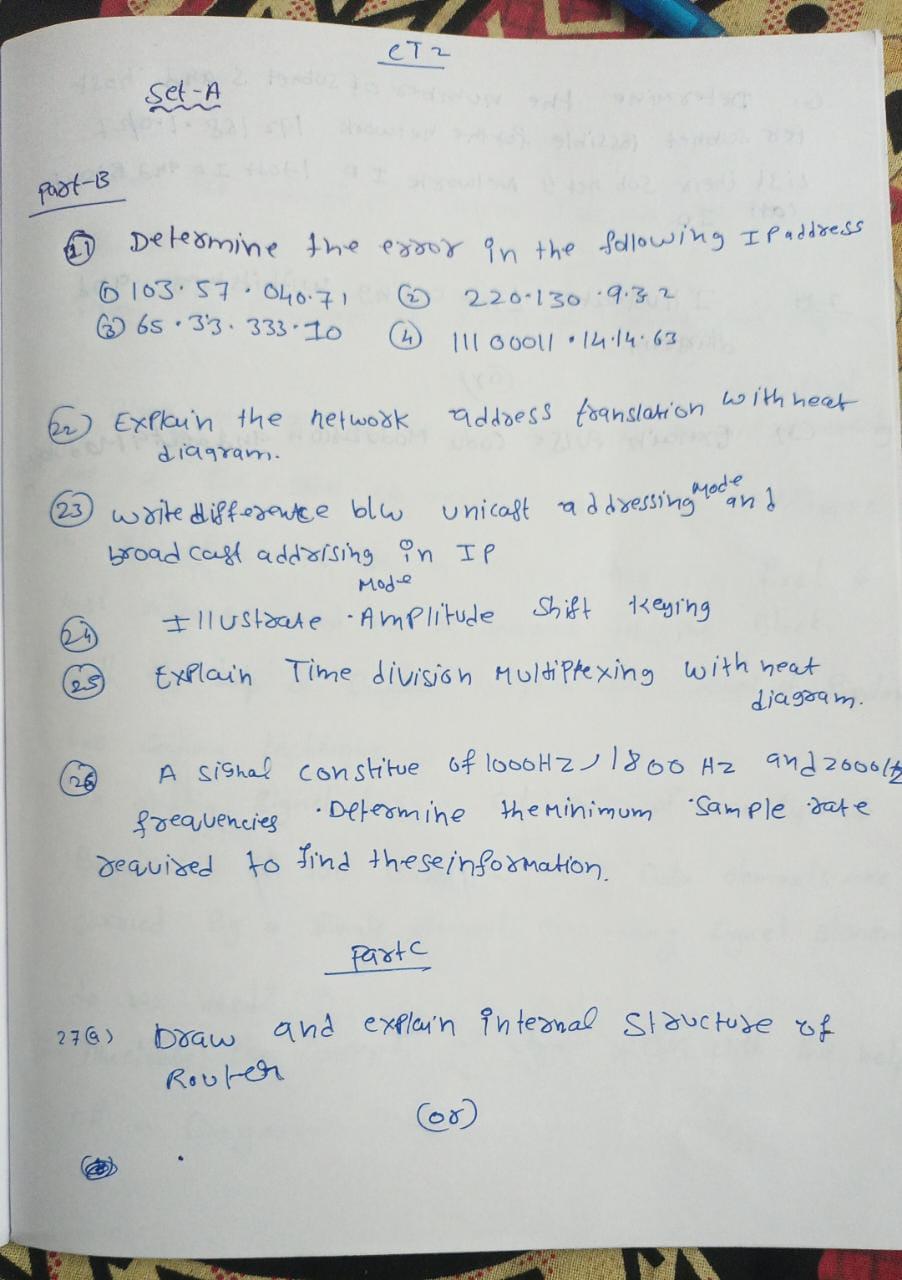 CT 2
Set-A
Part-B
21 Determine the error in the following IP address
① 103.57.040.71 ② 220.130.9.3.2
③ 65.33.333.10 ④ 11100011.14.14.63
22 Explain the network address translation with neat
diagram.
23 write difference b/w unicast addressing Mode and
broadcast addrising in IP
Mode
24 Illustrate Amplitude Shift Keying
25 Explain Time division Multiplexing with neat
diagram.
26 A signal constitue of 1000Hz, 1800 Hz and 2000Hz
frequencies. Determine the Minimum Sample rate
required to find these information.
Part C
27(a) Draw and explain internal Structure of
Router
(or)